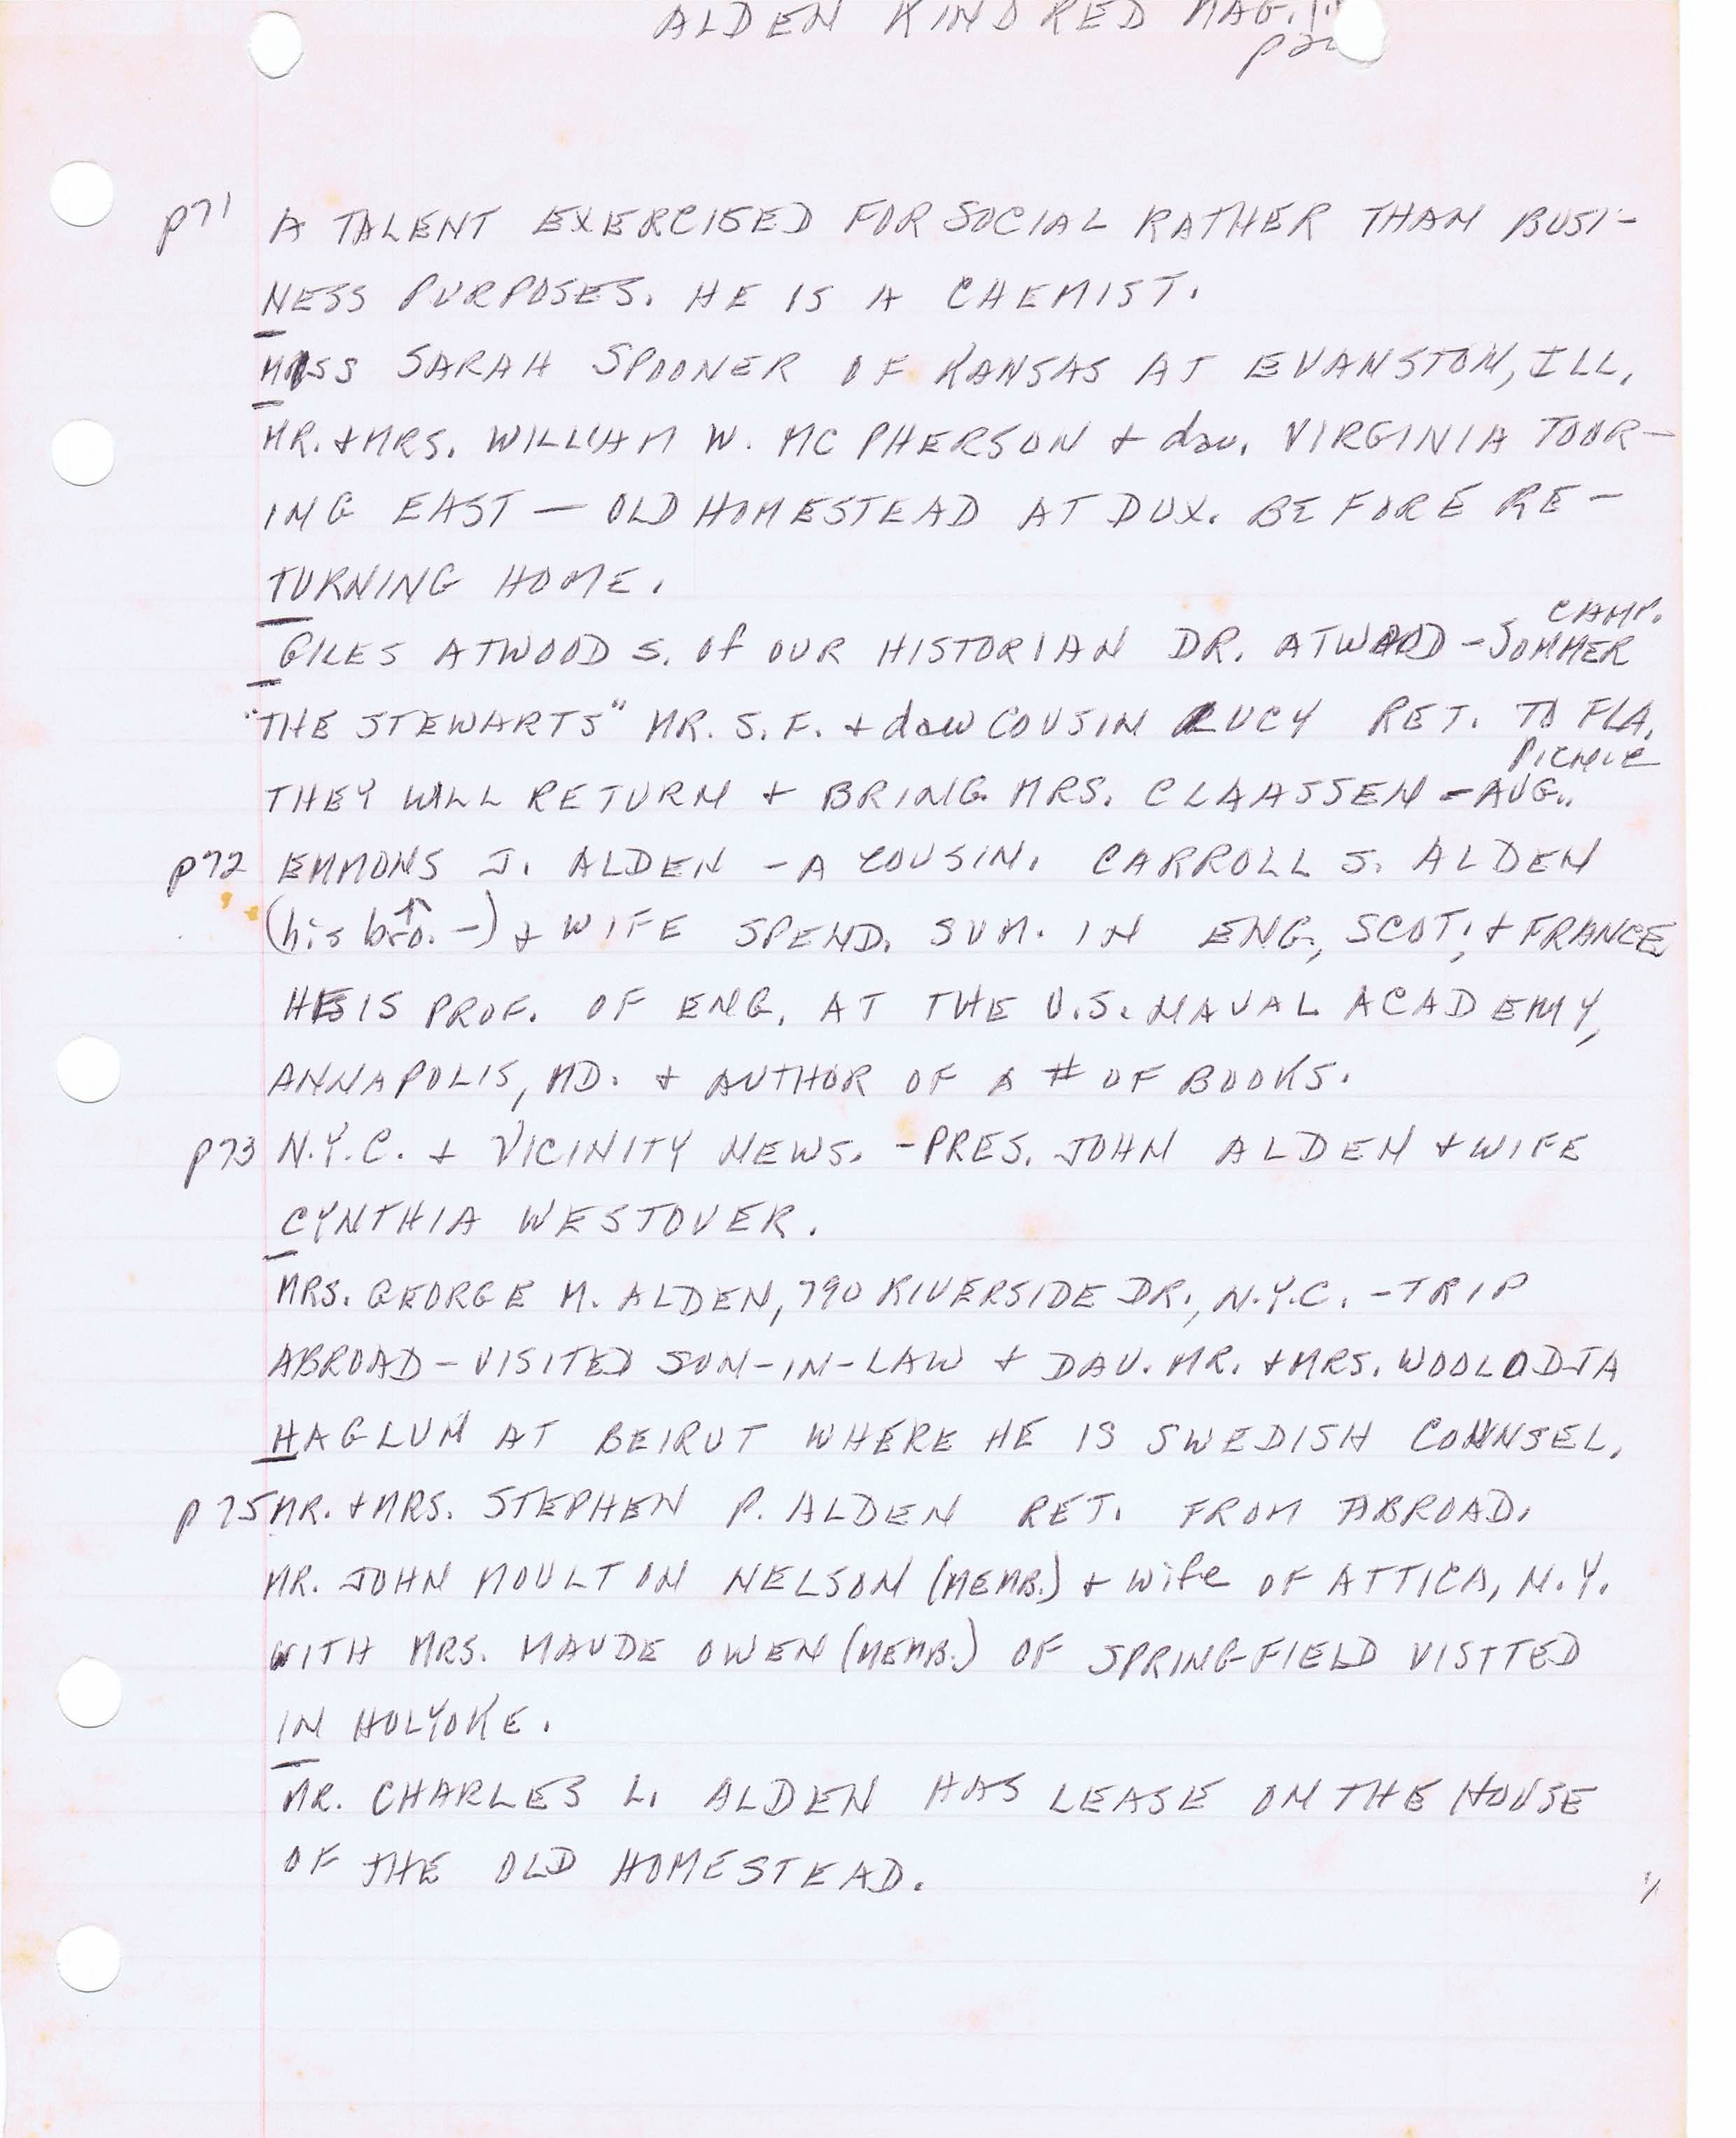 ALDEN KINDRED MAG.
p71 A TALENT EXERCISED FOR SOCIAL RATHER THAN BUSI-
NESS PURPOSES. HE IS A CHEMIST.
MISS SARAH SPOONER OF KANSAS AT EVANSTON, ILL.
MR. + MRS. WILLIAM W. MC PHERSON + dau. VIRGINIA TOUR-
ING EAST — OLD HOMESTEAD AT DUX. BEFORE RE-
TURNING HOME.
CAMP.
GILES ATWOOD S. Of OUR HISTORIAN DR. ATWOOD - SUMMER
"THE STEWARTS" MR. S. F. + dau COUSIN LUCY RET. TO FLA.
PICNIC
THEY WILL RETURN + BRING MRS. CLAASSEN - AUG..
p72 EMMONS J. ALDEN - A COUSIN. CARROLL S. ALDEN
(his bro. ↑ -) + WIFE SPEND. SUM. IN ENG., SCOT., + FRANCE
HE IS PROF. OF ENG. AT THE U.S. NAVAL ACADEMY,
ANNAPOLIS, MD. + AUTHOR OF A # OF BOOKS.
p73 N.Y.C. + VICINITY NEWS. - PRES. JOHN ALDEN + WIFE
CYNTHIA WESTOVER.
MRS. GEORGE M. ALDEN, 790 RIVERSIDE DR., N.Y.C. - TRIP
ABROAD - VISITED SON-IN-LAW + DAU. MR. + MRS. WOOLODJA
HAGLUN AT BEIRUT WHERE HE IS SWEDISH COUNSEL.
p75 MR. + MRS. STEPHEN P. ALDEN RET. FROM ABROAD.
MR. JOHN MOULTON NELSON (MEMB.) + wife OF ATTICA, N.Y.
WITH MRS. MAUDE OWEN (MEMB.) OF SPRINGFIELD VISITED
IN HOLYOKE.
MR. CHARLES L. ALDEN HAS LEASE ON THE HOUSE
OF THE OLD HOMESTEAD.